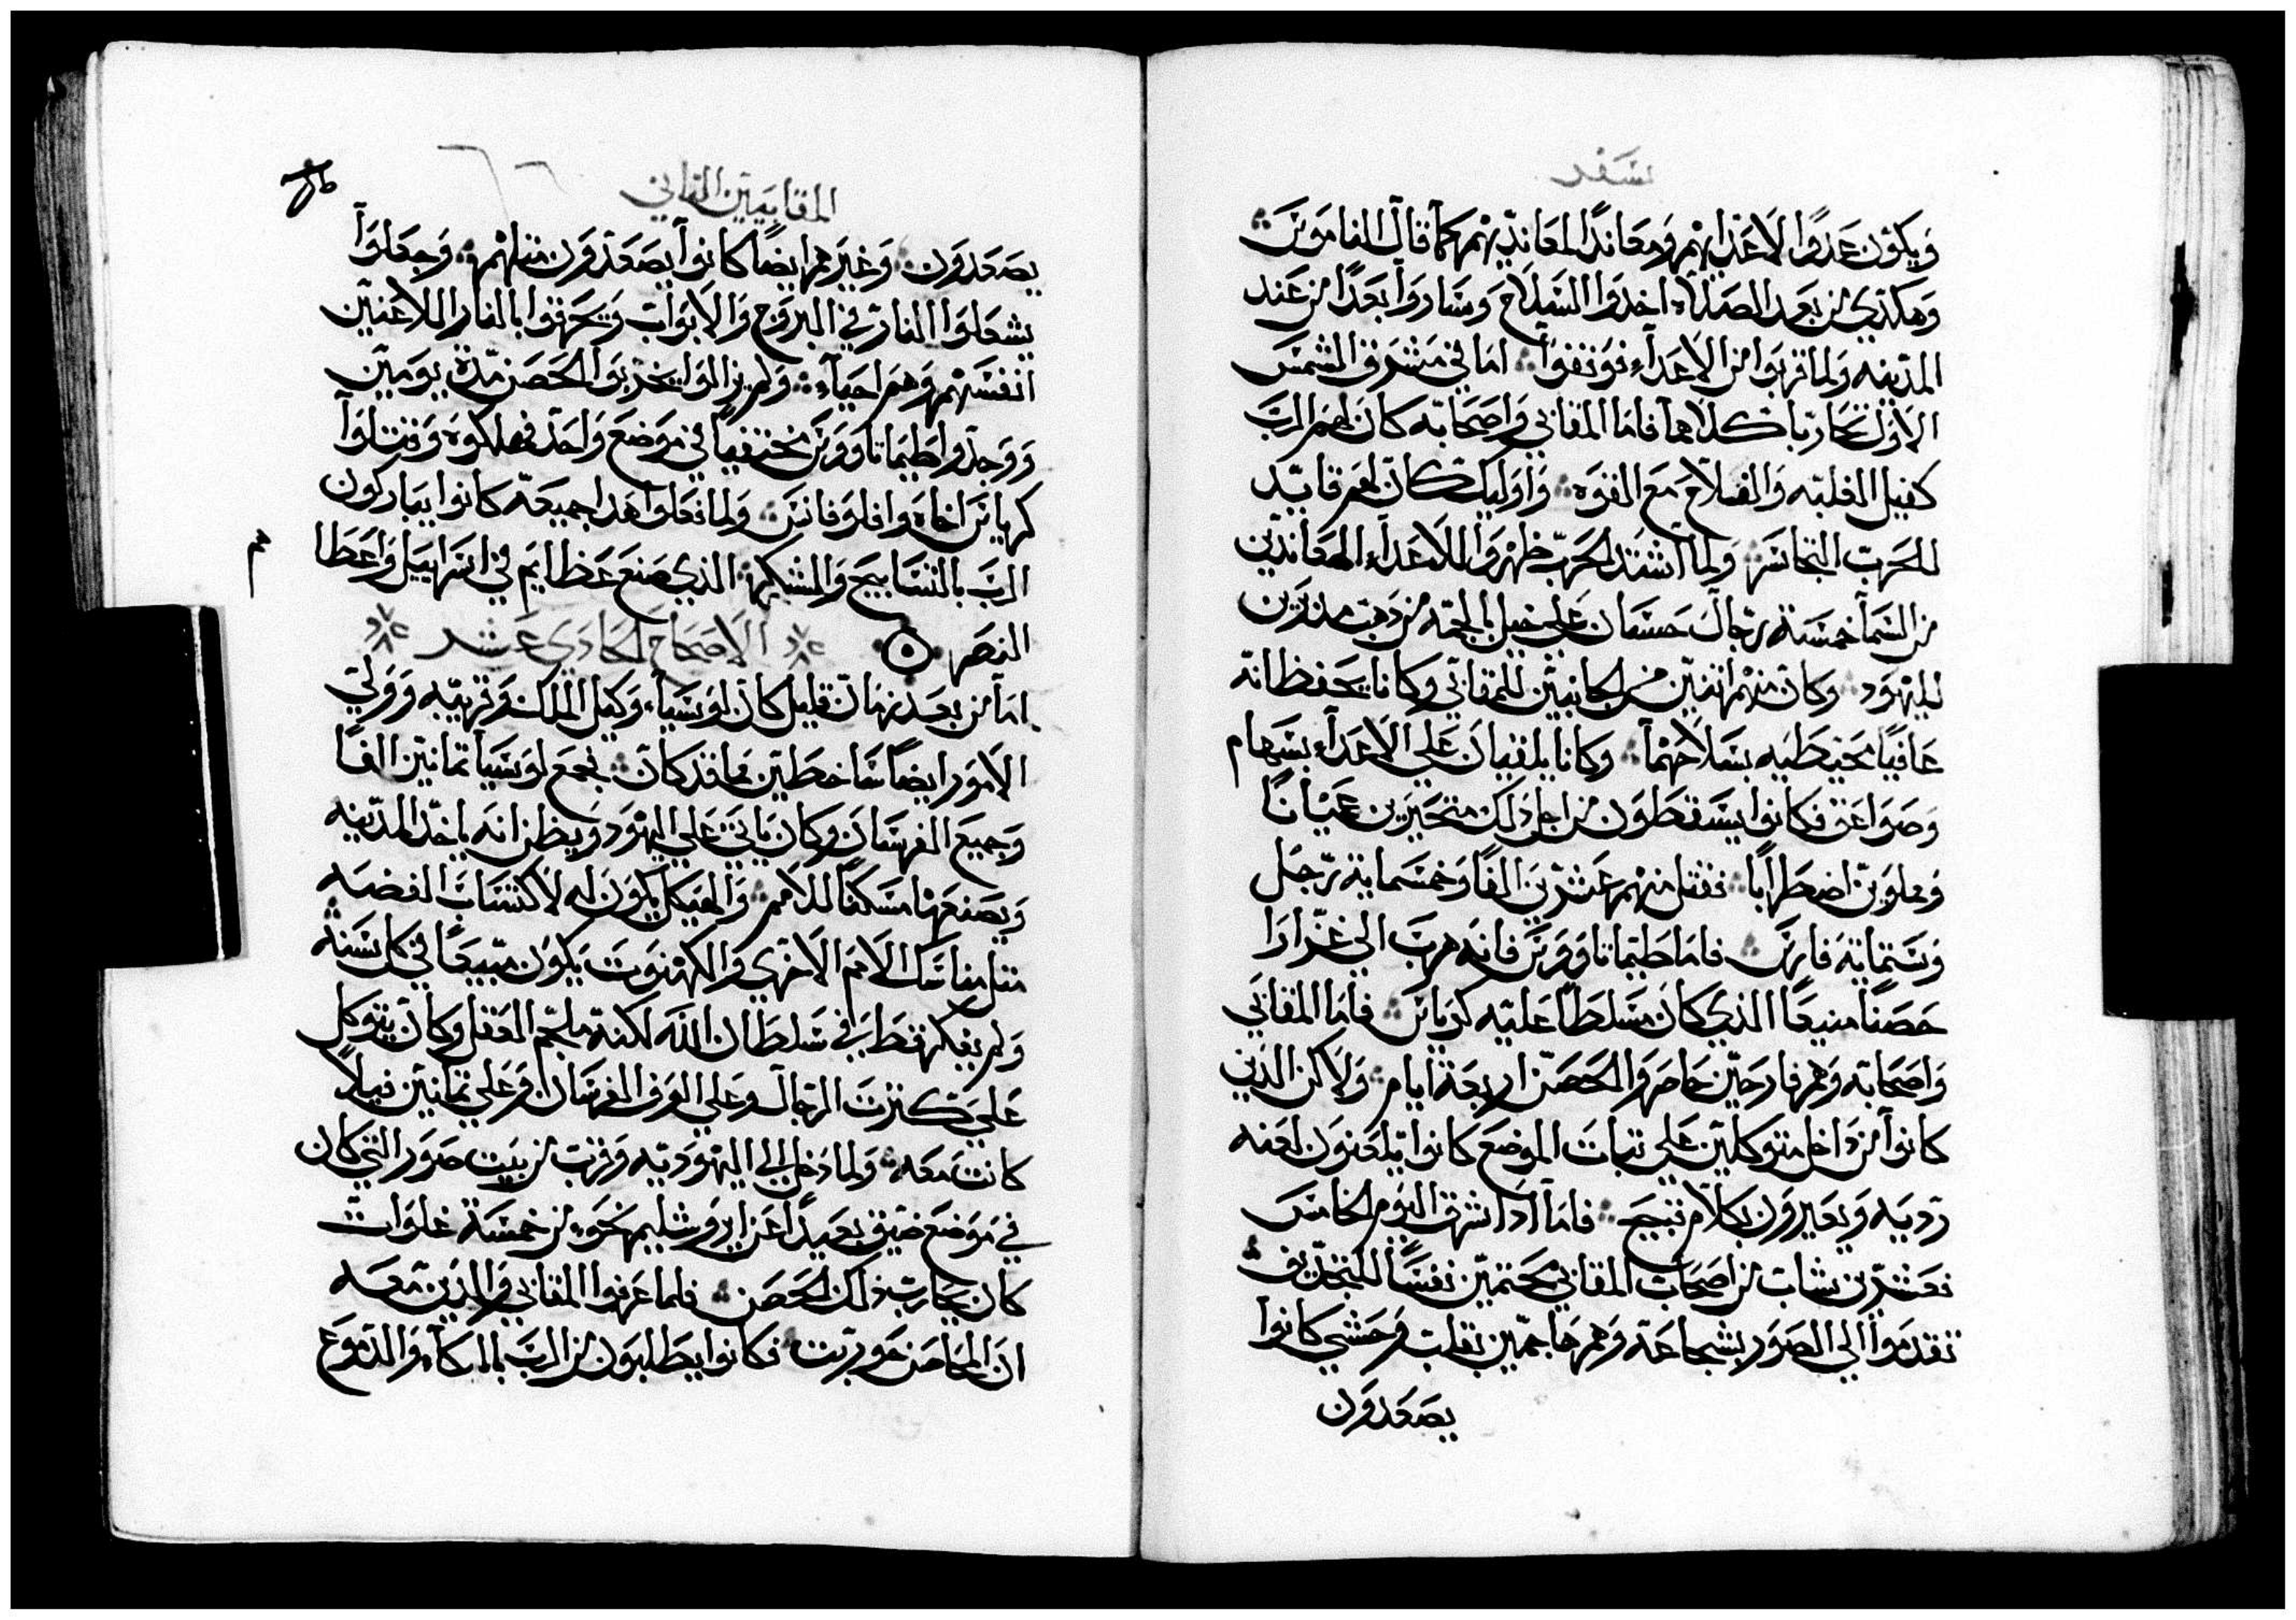 سفر
ويكون عدوًا لاعدايهم ومعاندًا لمعانديهم كما قال الناموس
وهكذي من بعد الصلاه اخدوا السلاح وساروا بعدًا من عند
المدينه ولما قربوا من الاعداء فوقفوا اما في مشرق الشمس
الاول تحاربا كلاهما فاما المقابي واصحابه كان لهم الرب
كفيل الغلبه والفلاح مع القوه واوليك كان لهم قايد
للحرب التجاسر ولما اشتد الحرب ظهروا للاعداء المعاندين
من السما خمسة رجال حسان علي خيل بالجمه من دهب مدبرين
لليهود وكان منهم اتنين من الجانبين للمقابي وكانا يحفظانه
عافيًا محيطيه بسلاحهما وكانا يلقيان علي الاعداء بسهام
وصواعق فكانوا يسقطون من اجل دلك متحيرين عميانًا
ومملوين اضطرابًا فقتل منهم عشرين الفًا وخمسماية رجل
وستماية فارس فاما طيماتاووس فانه هرب الي غزارا
حصنًا منيعًا الذي كان مسلطًا عليه كرياس فاما المقابي
واصحابه وهم فارحين حاصروا الحصن اربعة ايام ولاكن الذين
كانوا من داخل متوكلين علي تبات الموضع كانوا يلعنون لعنه
رديه ويعيرون بكلام قبيح فاما ادا اشرق اليوم الخامس
فعشرين شاب من اصحاب المقابي محتمين نفسًا للتجديف
تقدموا الي الصور بشجاعه وهم هاجمين بقلب وحشي كانوا
يصعدون
المقابيين التاني
يصعدون وغيرهم ايضًا كانوا يصعدون متلهم وجعلوا
يشعلوا النار في البروج والابواب ويحرقوا بالنار الملاعنين
انفسهم وهم احياء ولم يزالوا يخربوا الحصن مدة يومين
ووجدوا طيماتاووس مختفيًا في موضع واحد فهلكوه وقتلوا
كرياس اخاه وافلوفانس ولما فعلوا هدا جميعه كانوا يباركون
الرب بالتسابيح والشكر الذي صنع عظايم في اسراييل واعطا
هم
النصر الاصحاح الحادي عشر
اما من بعد زمان قليل كان لوسيا وكيل الملك وقريبه وولي
الامور ايضًا ساخطين مما قد كان فجمع لوسيا تمانين الفًا
وجميع الفرسان وكان ياتي علي اليهود ويظن انه ياخد المدينه
ويصنعها مسكنًا للامم والهيكل يكون له لاكتساب الفضه
متل مناسك الامم الاخري والكهنوت يكون مبيعًا في كل سنه
ولم يفكر قط في سلطان الله لكنه ملجم العقل وكان يتوكل
علي كترت الرجال وعلي الوف الفرسان وعلي تمانين فيلاً
كانت معه ولما دخل الي اليهوديه وقرب من بيت صور التي كان
في موضع ضيق بعيدًا عن ايروشليم نحو من خمسة غلوات
كان يحارب ذلك الحصن فلما عرفوا المقابي والذين معه
ان المحاصن حوربت فكانوا يطلبون من الرب بالبكاء والدموع